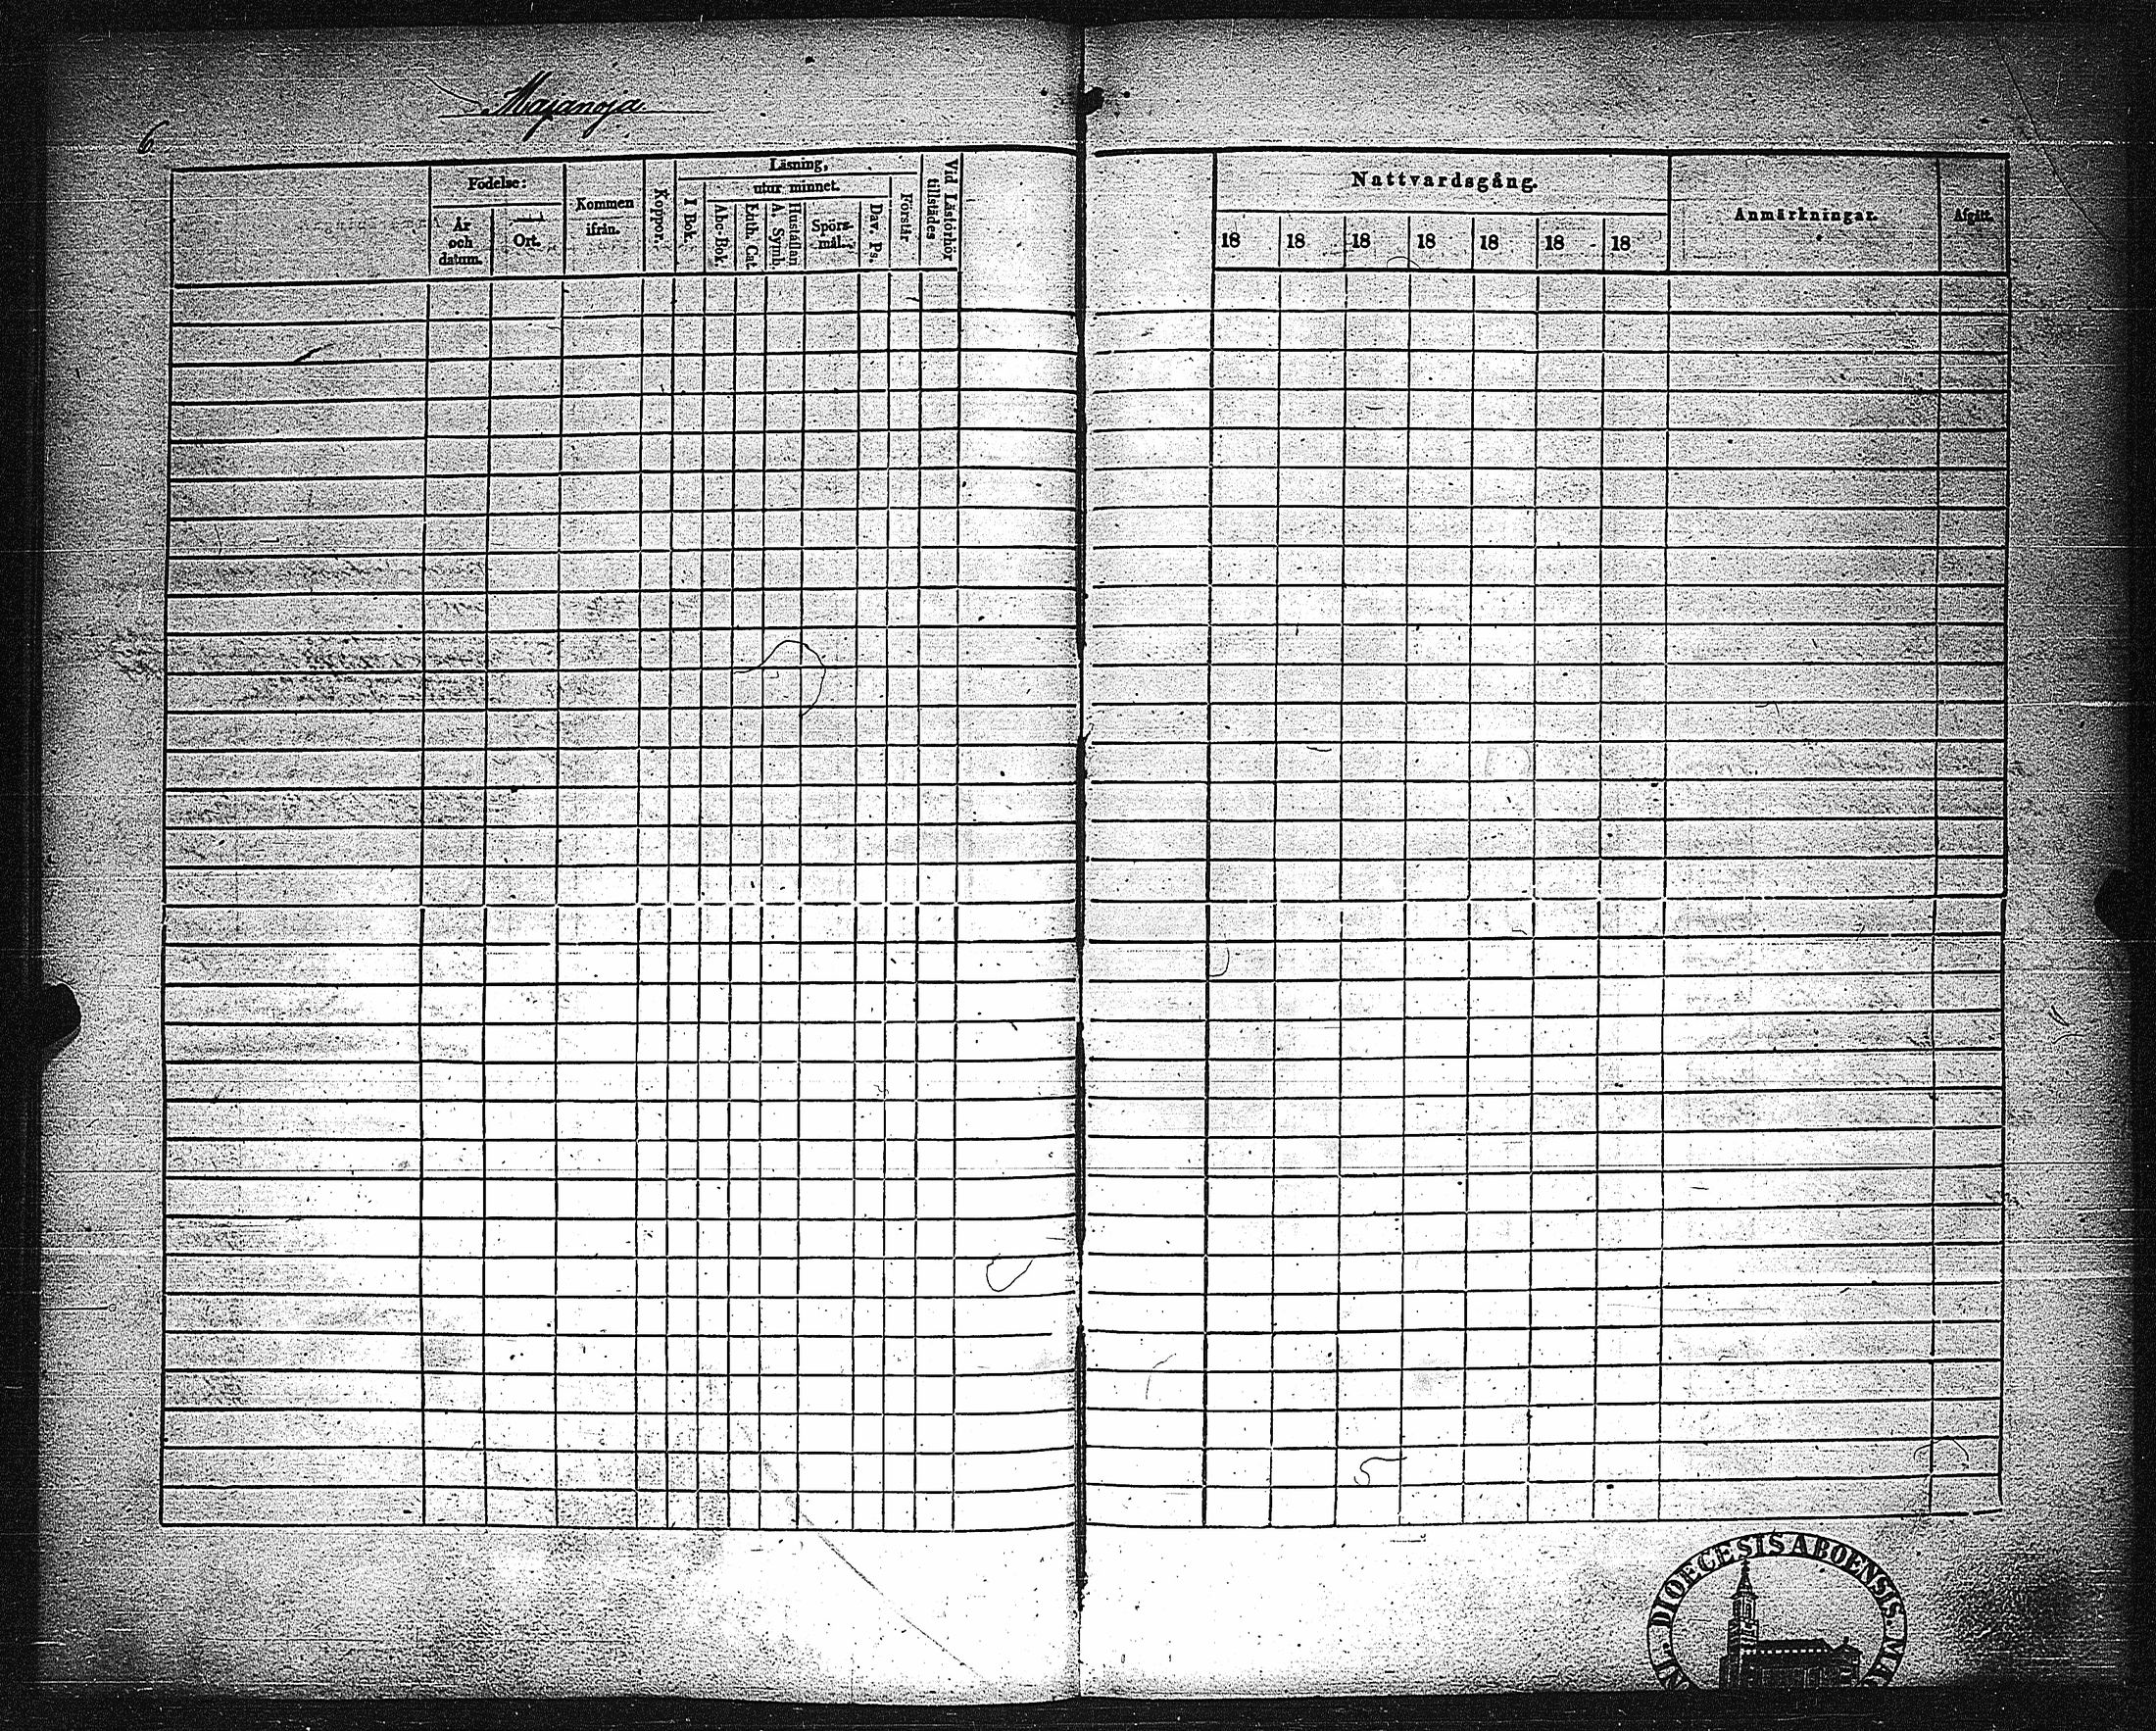 Majanoja
6
Födelse:
År och datum.
Ort.
Kommen ifrån.
Koppor.
Läsning,
I Bok.
utur minnet.
Abc-Bok.
Luth. Cat.
Hustaflan A. Symb.
Spörs-mål.
Dav. Ps.
Förstår
Vid Läsförhör tillstädes
Nattvardsgång.
18 18 18 18 18 18 18
Anmärkningar.
Afgått.
DIOECESIS ABOENSIS